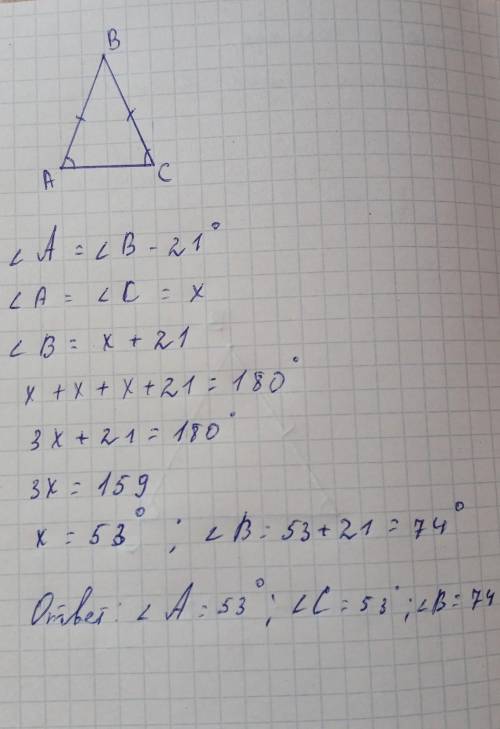 B
A
C
∠A = ∠B - 21°
∠A = ∠C = x
∠B = x + 21
x + x + x + 21 = 180°
3x + 21 = 180°
3x = 159
x = 53° ; ∠B = 53 + 21 = 74°
Ответ: ∠A = 53°; ∠C = 53°; ∠B = 74